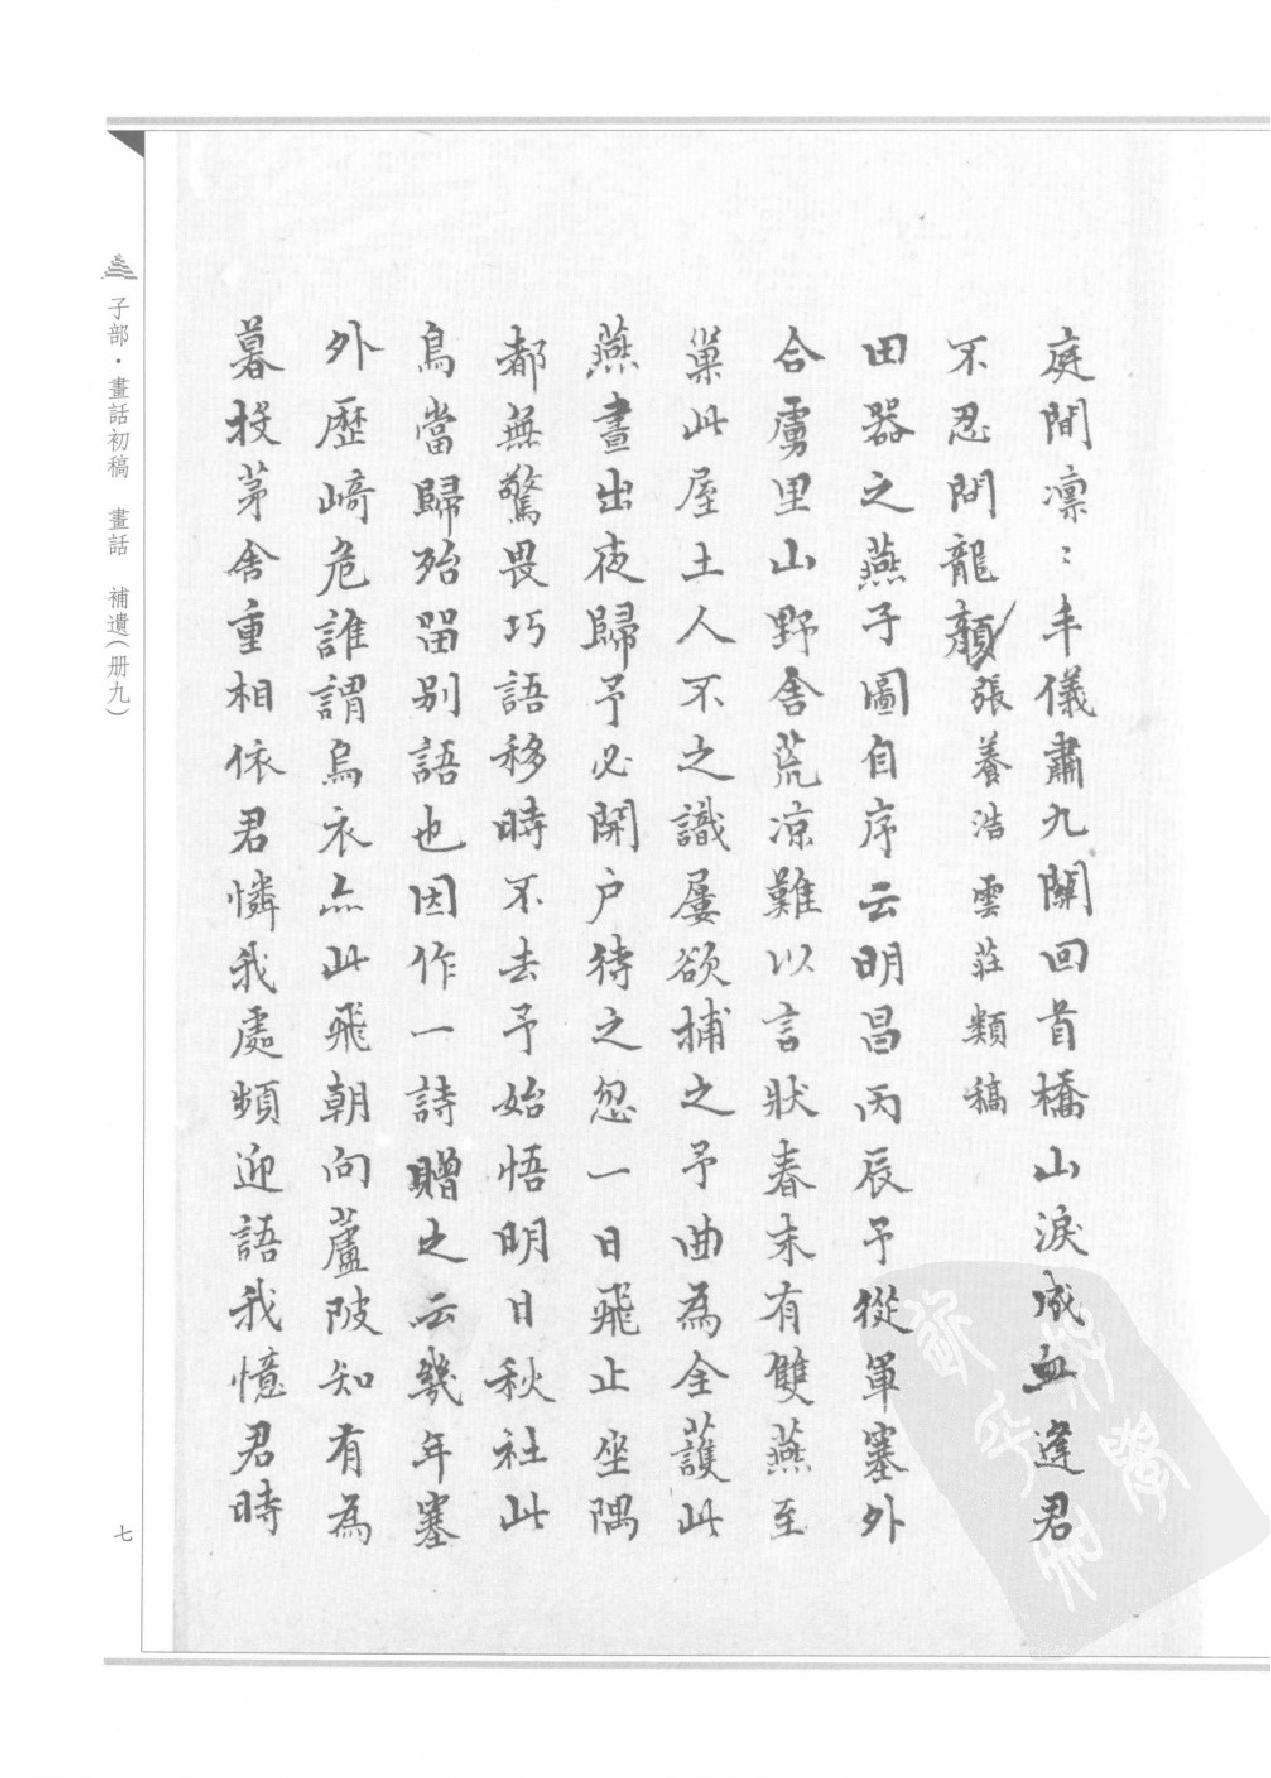 庭間凛：丰儀肅九關回首橋山淚成血逢君
不忍問龍顏張養浩雲莊類稿
田器之燕子圖自序云明昌丙辰予從軍塞外
合虜里山野舍荒凉難以言狀春末有雙燕至
巢此屋土人不之識屢欲捕之予曲為全護此
燕晝出夜歸予必開户待之忽一日飛止坐隅
都無驚畏巧語移時不去予始悟明日秋社此
鳥當歸殆留别語也因作一詩贈之云幾年塞
外歷崎危誰謂烏衣点此飛朝向蘆陂知有為
暮投茅舍重相依君憐我處頻迎語我憶君時
子部·畫話初稿 畫話 補遺（册九）
七